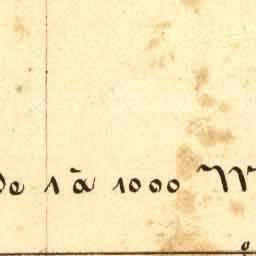 de 1 à 1000 M